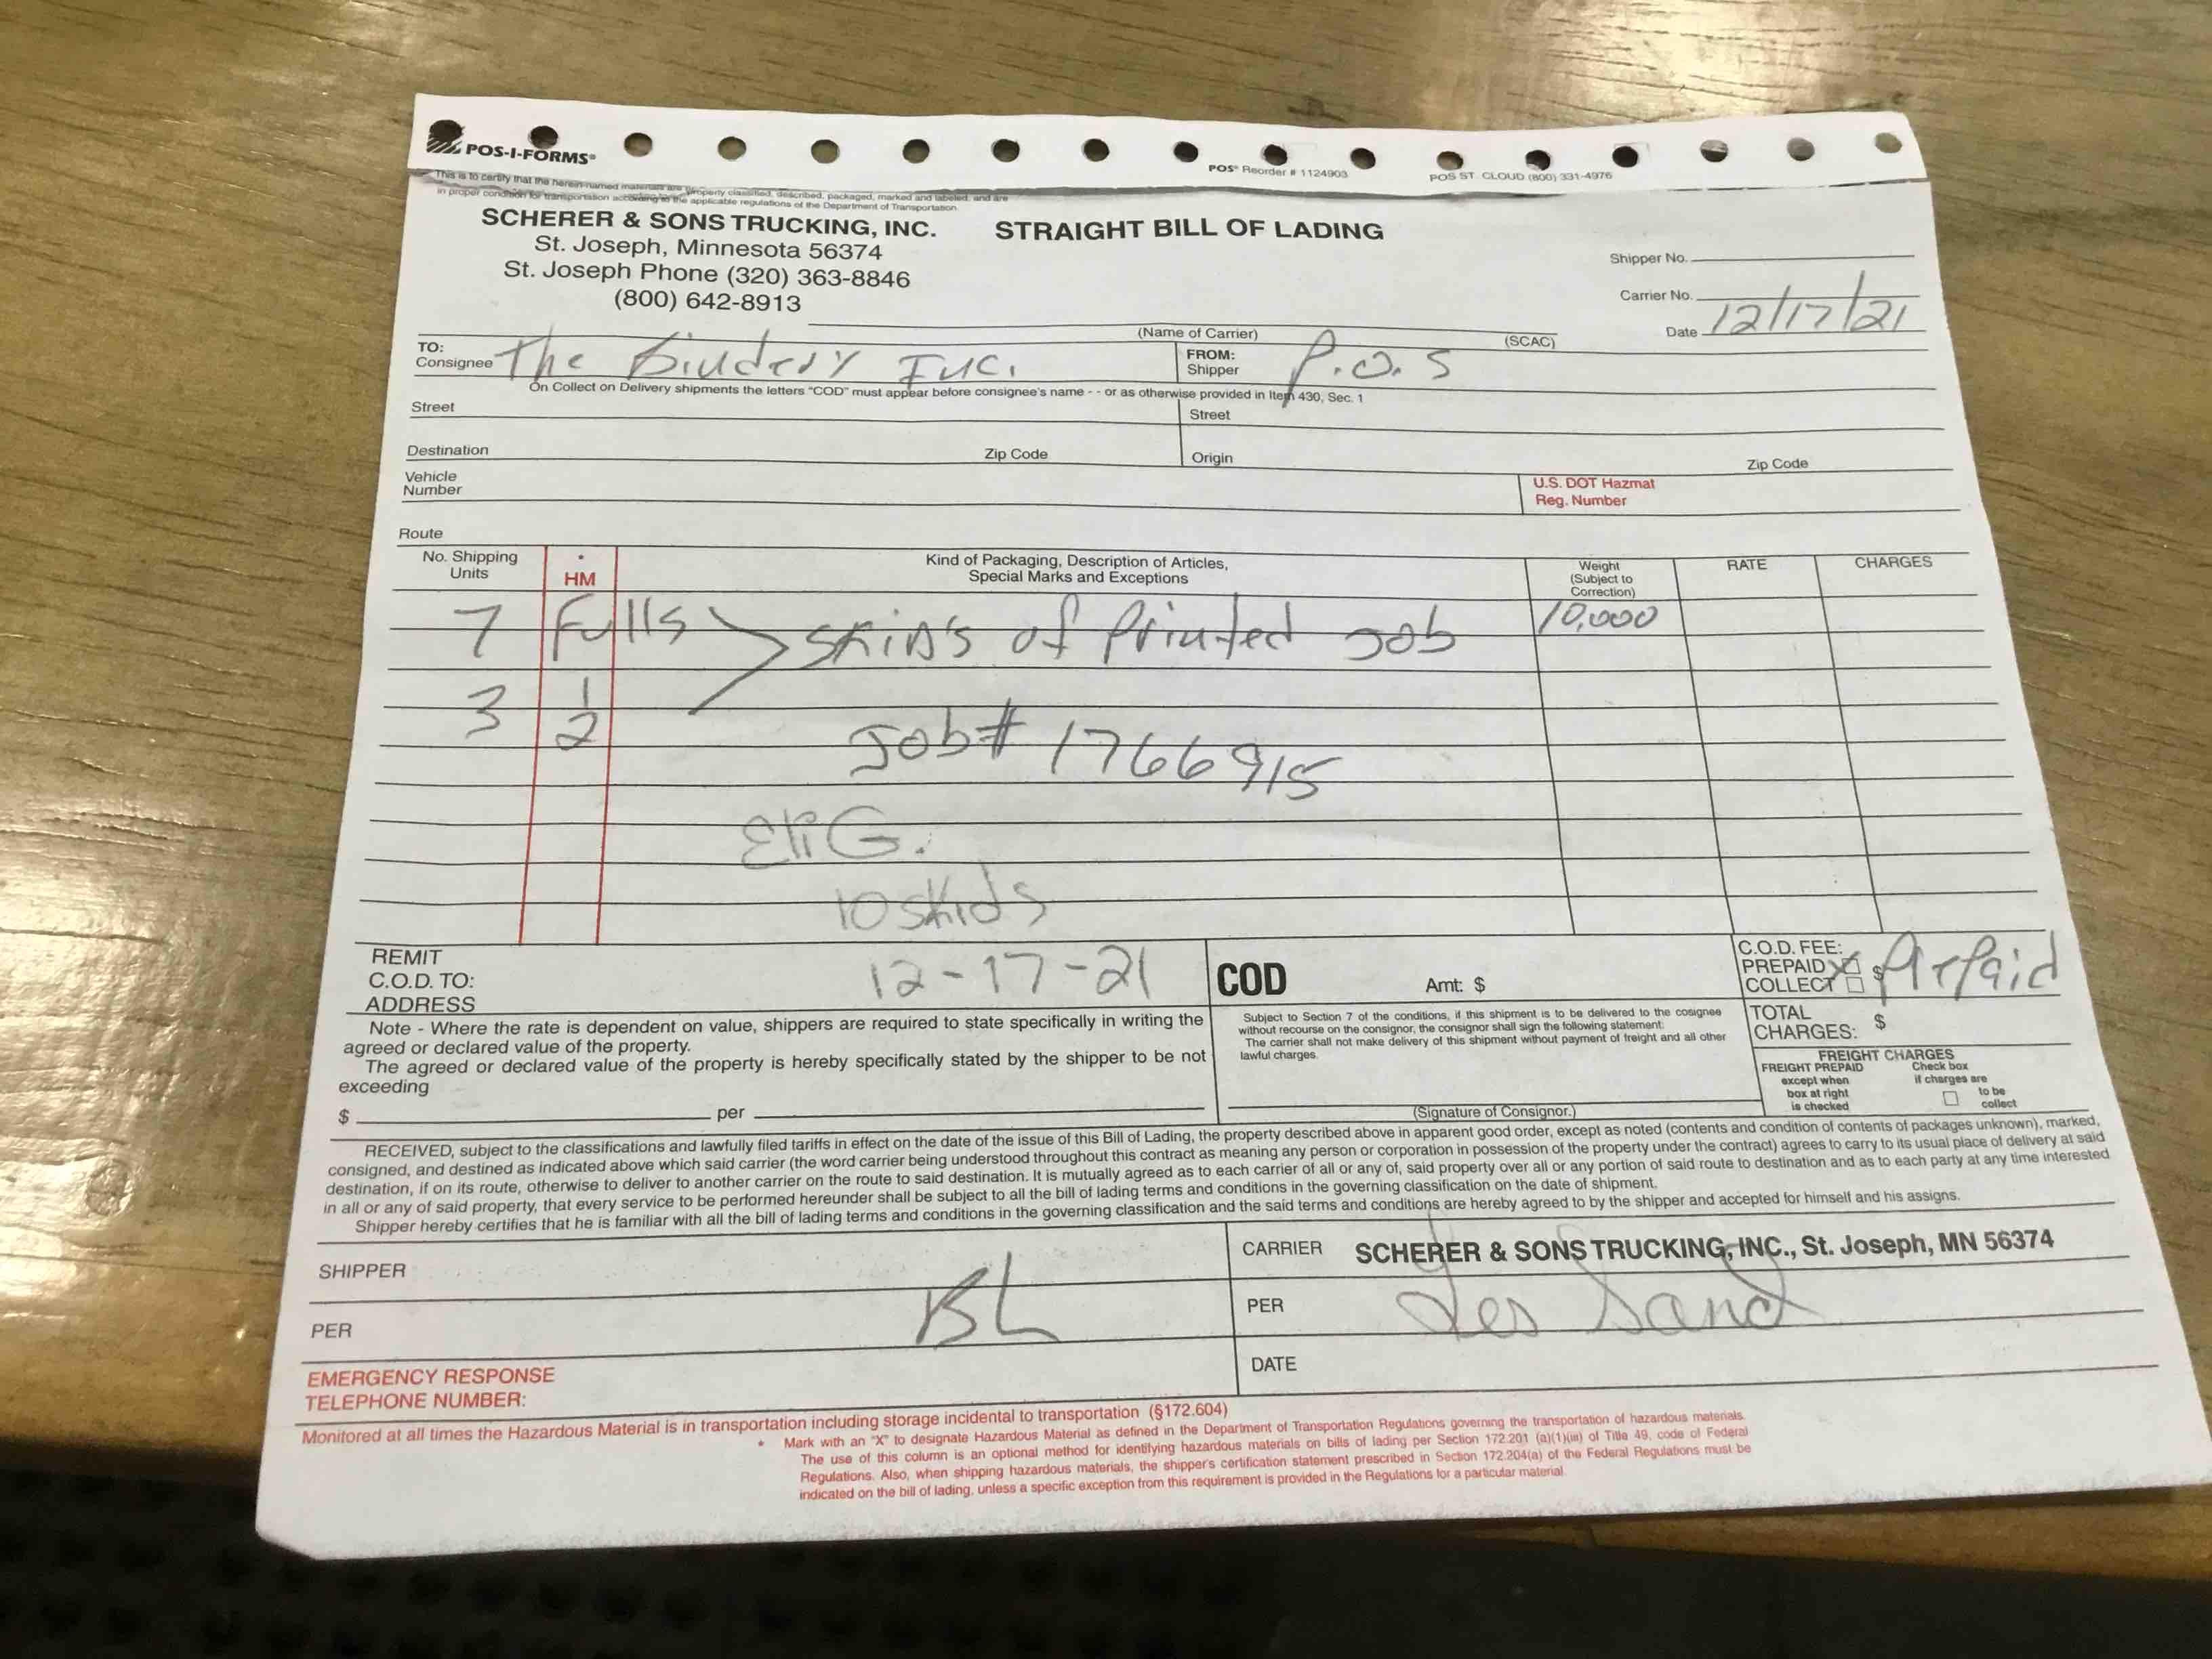 POS-I-FORMS®
POS® Reorder # 1124903
POS ST. CLOUD (800) 331-4976
This is to certify that the herein-named materials are properly classified, described, packaged, marked and labeled, and are
in proper condition for transportation according to the applicable regulations of the Department of Transportation.
SCHERER & SONS TRUCKING, INC.
STRAIGHT BILL OF LADING
St. Joseph, Minnesota 56374
St. Joseph Phone (320) 363-8846
(800) 642-8913
Shipper No.
Carrier No.
Date 12/17/21
(Name of Carrier)
(SCAC)
TO:
Consignee The Bindery Inc.
FROM:
Shipper P.O.S
On Collect on Delivery shipments the letters "COD" must appear before consignee's name - - or as otherwise provided in Item 430, Sec. 1
Street
Street
Destination
Zip Code
Origin
Zip Code
Vehicle
Number
U.S. DOT Hazmat
Reg. Number
Route
No. Shipping
Units
*
HM
Kind of Packaging, Description of Articles,
Special Marks and Exceptions
Weight
(Subject to
Correction)
RATE
CHARGES
7 Fulls of Printed Job 10,000
3 1/2
Job# 1766915
Eri G.
10 skids
12-17-21
REMIT
C.O.D. TO:
ADDRESS
COD
Amt: $
C.O.D. FEE:
PREPAID X $ Prepaid
COLLECT
Note - Where the rate is dependent on value, shippers are required to state specifically in writing the
agreed or declared value of the property.
The agreed or declared value of the property is hereby specifically stated by the shipper to be not
exceeding
$ per
Subject to Section 7 of the conditions, if this shipment is to be delivered to the cosignee
without recourse on the consignor, the consignor shall sign the following statement:
The carrier shall not make delivery of this shipment without payment of freight and all other
lawful charges.
(Signature of Consignor.)
TOTAL
CHARGES: $
FREIGHT CHARGES
FREIGHT PREPAID
except when
box at right
is checked
Check box
if charges are
to be
collect
RECEIVED, subject to the classifications and lawfully filed tariffs in effect on the date of the issue of this Bill of Lading, the property described above in apparent good order, except as noted (contents and condition of contents of packages unknown), marked,
consigned, and destined as indicated above which said carrier (the word carrier being understood throughout this contract as meaning any person or corporation in possession of the property under the contract) agrees to carry to its usual place of delivery at said
destination, if on its route, otherwise to deliver to another carrier on the route to said destination. It is mutually agreed as to each carrier of all or any of, said property over all or any portion of said route to destination and as to each party at any time interested
in all or any of said property, that every service to be performed hereunder shall be subject to all the bill of lading terms and conditions in the governing classification on the date of shipment.
Shipper hereby certifies that he is familiar with all the bill of lading terms and conditions in the governing classification and the said terms and conditions are hereby agreed to by the shipper and accepted for himself and his assigns.
SHIPPER
CARRIER SCHERER & SONS TRUCKING, INC., St. Joseph, MN 56374
PER BL
PER Les Sand
DATE
EMERGENCY RESPONSE
TELEPHONE NUMBER:
Monitored at all times the Hazardous Material is in transportation including storage incidental to transportation (§172.604)
* Mark with an "X" to designate Hazardous Material as defined in the Department of Transportation Regulations governing the transportation of hazardous materials.
The use of this column is an optional method for identifying hazardous materials on bills of lading per Section 172.201 (a)(1)(iii) of Title 49, code of Federal
Regulations. Also, when shipping hazardous materials, the shipper's certification statement prescribed in Section 172.204(a) of the Federal Regulations must be
indicated on the bill of lading, unless a specific exception from this requirement is provided in the Regulations for a particular material.